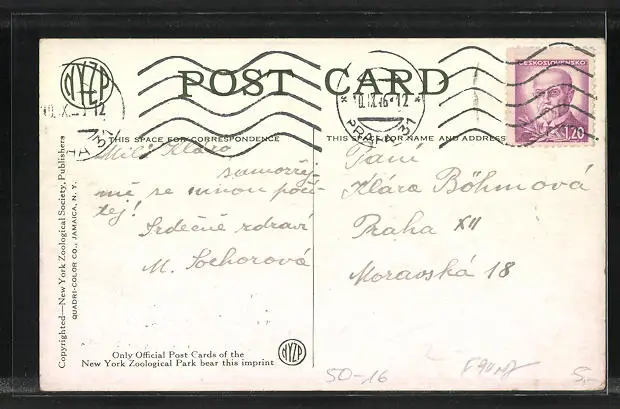 NYZP
POST CARD
ČESKOSLOVENSKO
1.20
PRAHA 37
THIS SPACE FOR CORRESPONDENCE
THIS SPACE FOR NAME AND ADDRESS
Milá Kláro
samozřej-
mě se mnou počí-
tej!
Srdečně zdraví
M. Sochorová
Paní
Klára Böhmová
Praha XII
Moravská 18
Copyrighted—New York Zoological Society, Publishers
QUADRI-COLOR CO., JAMAICA, N. Y.
Only Official Post Cards of the
New York Zoological Park bear this imprint
NYZP
50-16
5,-